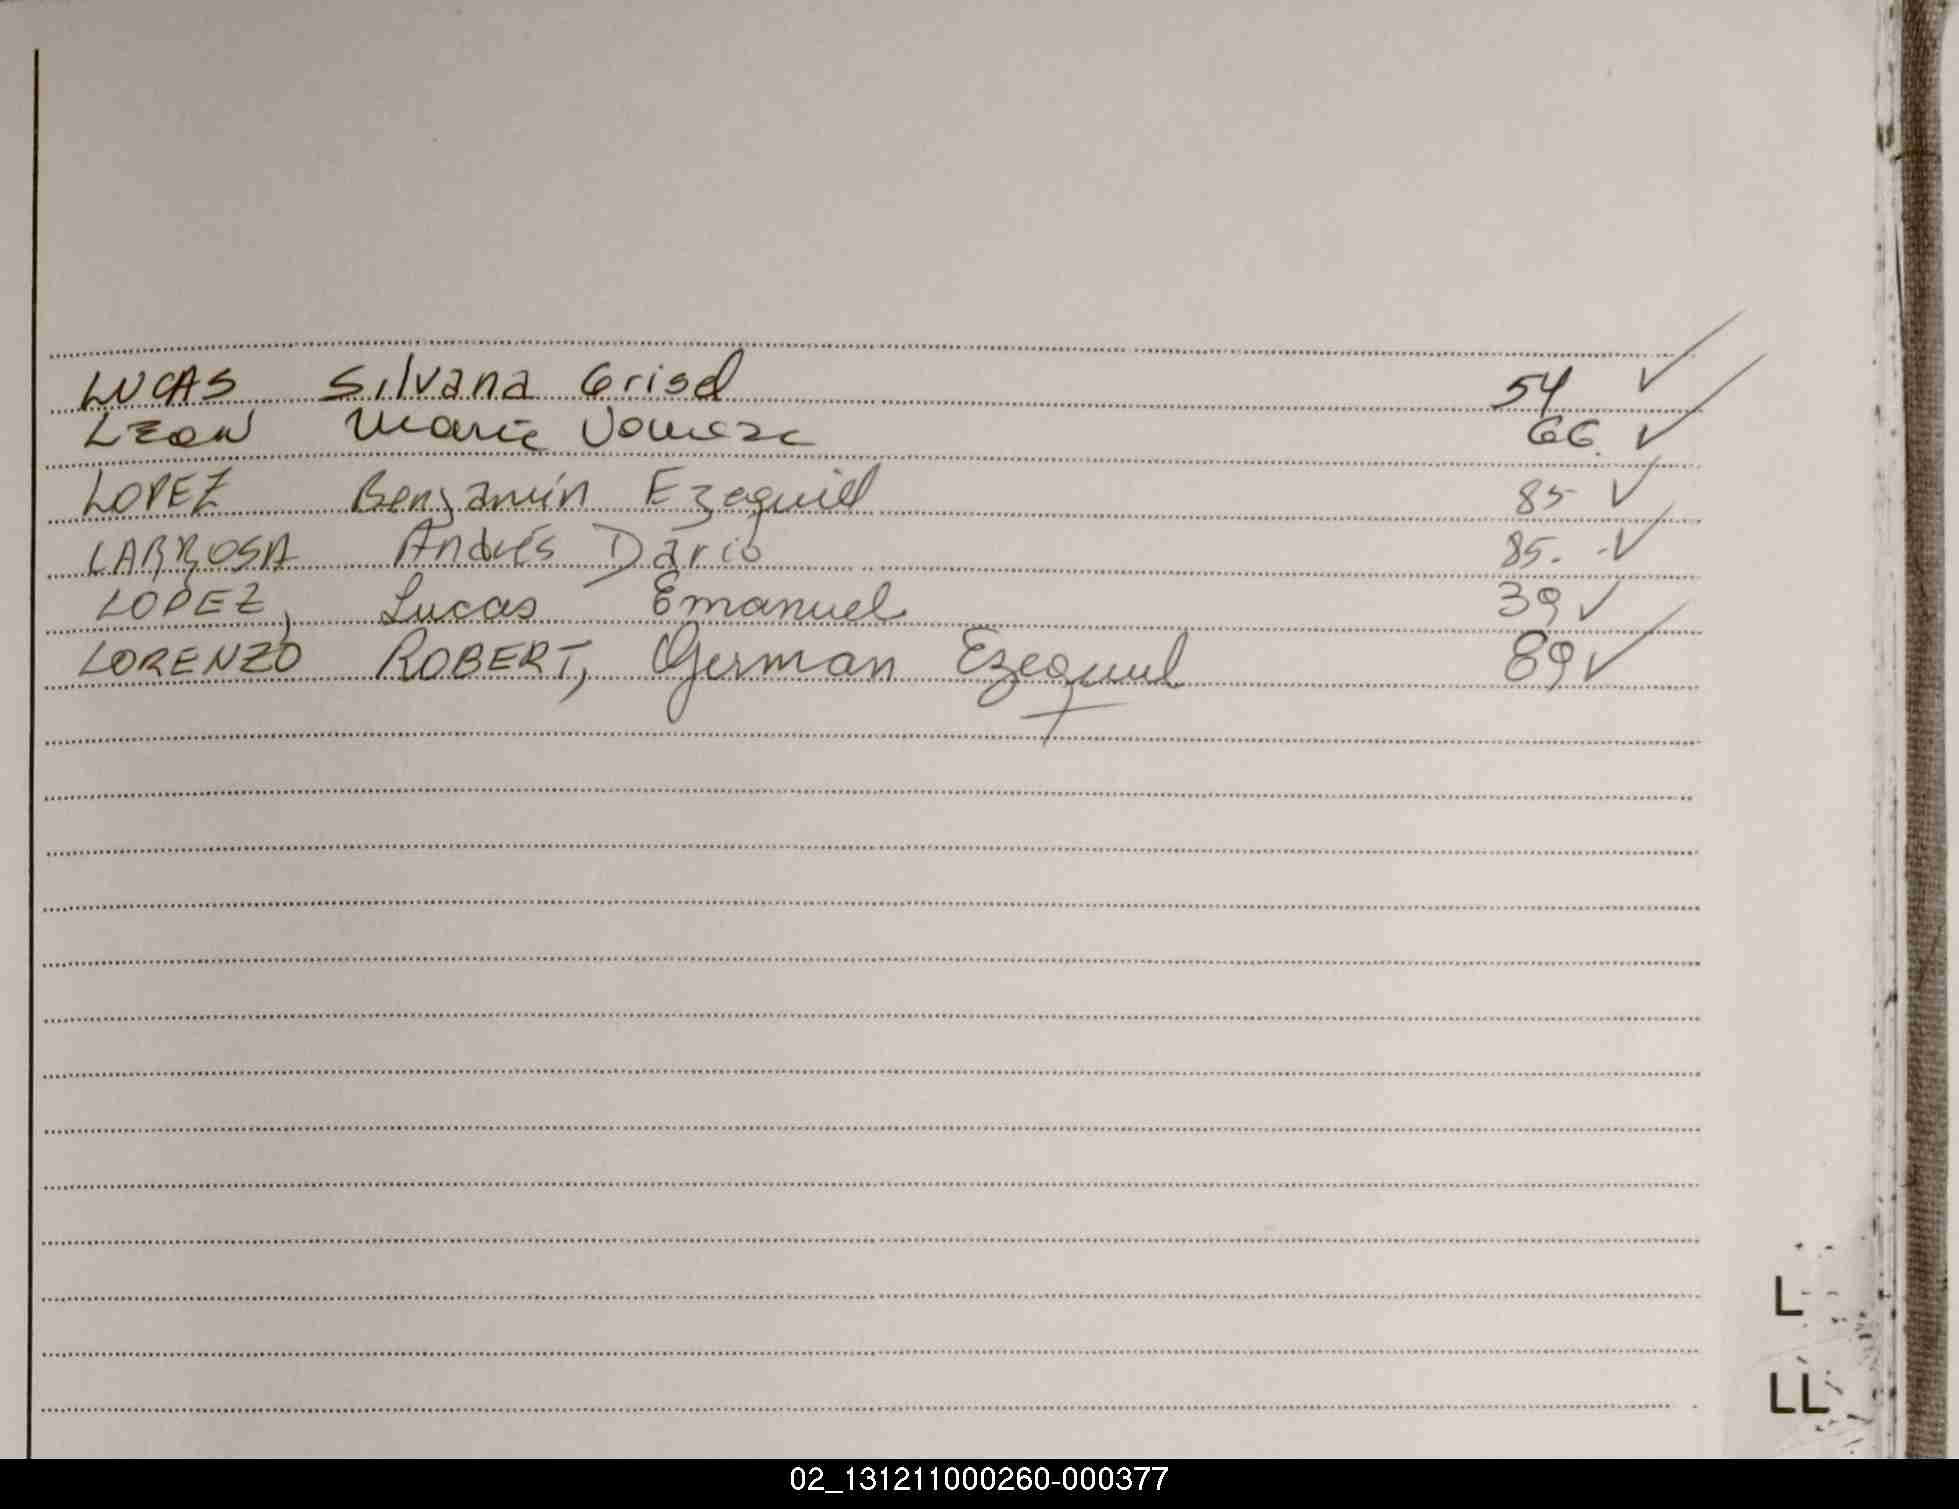 LUCAS Silvana Grisel 54 ✓
LEON Maria 66. ✓
LOPEZ Benjamín Ezequiel 85 ✓
LARROSA Andrés Dario 85. ✓
LOPEZ, Lucas Emanuel 39 ✓
LORENZO ROBERT, German Ezequiel 89 ✓
L
LL
02_131211000260-000377